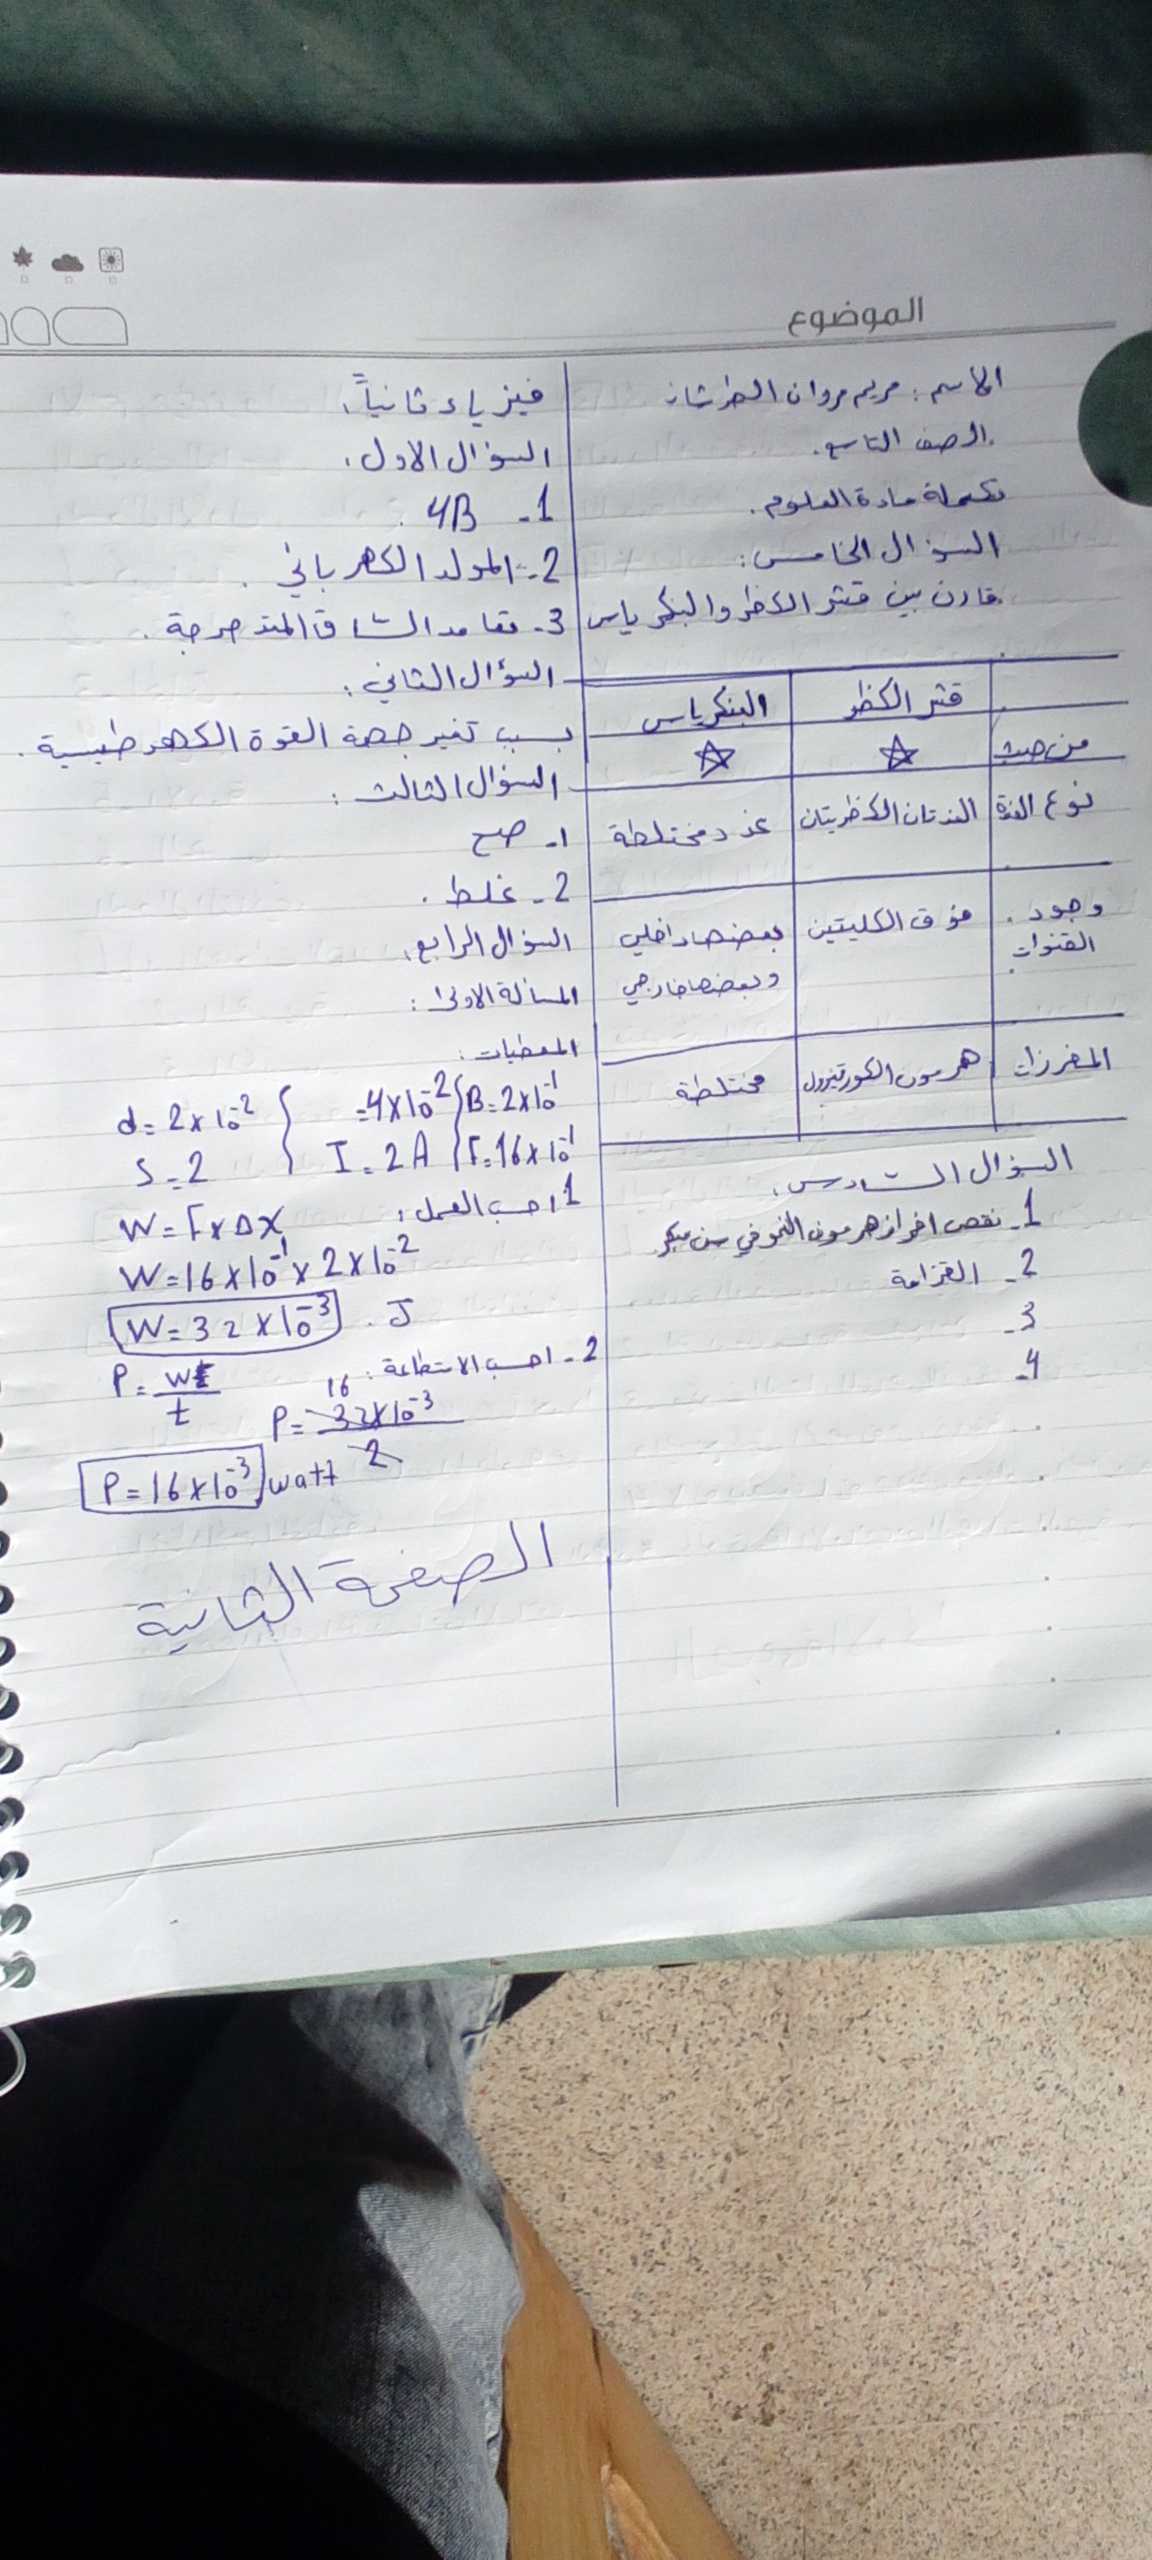 الموضوع
الاسم: مريم مروان الطرشان
الصف التاسع.
تكملة مادة العلوم.
السؤال الخامس:
قارن بين قشر الكظر والبنكرياس
قشر الكظر | البنكرياس
من حيث
نوع الغدة | الغدتان الكظريتان | غدد مختلطة
وجود القنوات | فوق الكليتين | بعضها داخلي وبعضها خارجي
المفرزات | هرمون الكورتيزول | مختلطة
السؤال السادس:
1- نقص افراز هرمون النمو في سن مبكر
2- القزامة
3-
4-
فيزياء ثانياً:
السؤال الاول:
1- 4B
2- المولد الكهربائي.
3- تعامد الساق المتدحرجة.
السؤال الثاني:
بسبب تغير جهة القوة الكهرطيسية.
السؤال الثالث:
1- صح
2- غلط.
السؤال الرابع:
المسألة الاولى:
المعطيات:
B=2x10⁻¹ =4x10⁻² d=2x10⁻²
F=16x10⁻¹ I=2A S=2
1 احسب العمل:
W=FxΔX
W=16x10⁻¹x2x10⁻²
W=32x10⁻³ . J
2- احسب الاستطاعة:
P=W/t
16
P=32x10⁻³/2
P=16x10⁻³ watt
الصفحة الثانية